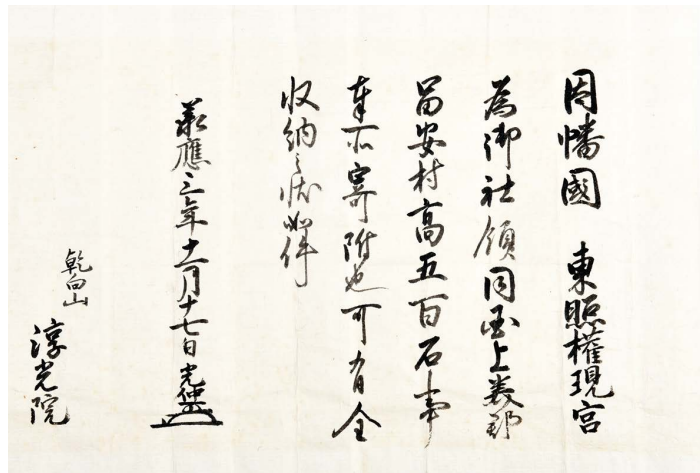 因幡國　東照權現宮
為御社領同国上美郡
邑安村高五百石事
奉所寄附也可有全
収納之状如件
承應三年十二月十七日 光仲
乾向山
淳光院